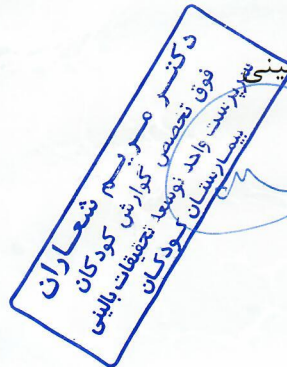 ینی
دکتر مریم شعاران
فوق تخصص گوارش کودکان
سرپرست واحد توسعه تحقیقات بالینی
بیمارستان کودکان